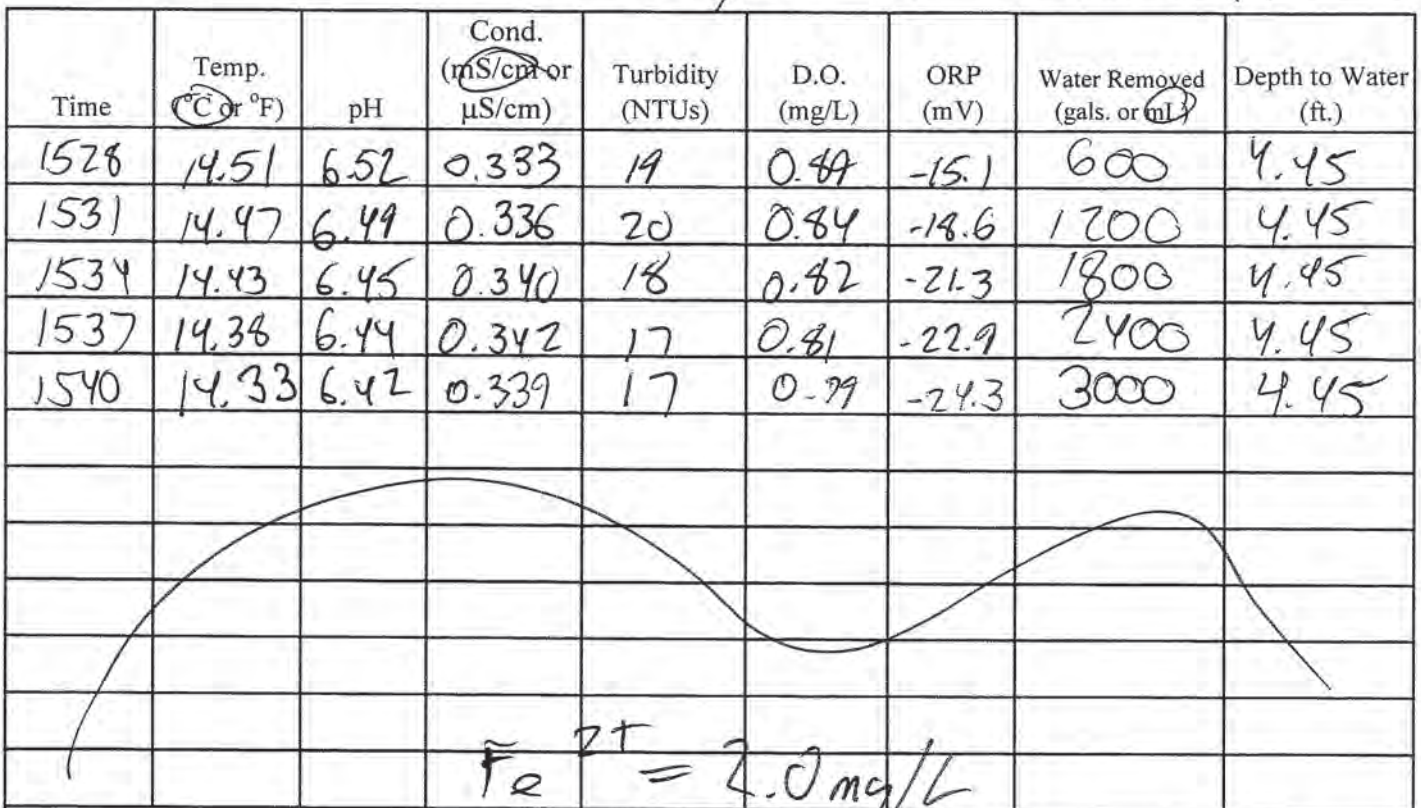 Time Temp. (°C or °F) pH Cond. (mS/cm or µS/cm) Turbidity (NTUs) D.O. (mg/L) ORP (mV) Water Removed (gals. or mL) Depth to Water (ft.)
1528 14.51 6.52 0.333 19 -15.1 600 4.45
1531 14.47 6.49 0.336 20 0.84 -18.6 1200 4.45
1534 14.43 6.45 0.340 18 0.82 -21.3 1800 4.45
1537 14.38 6.44 0.342 17 0.81 -22.9 2400 4.45
1540 14.33 6.42 0.339 17 0.79 -24.3 3000 4.45
Fe 2+ = 2.0 mg/L